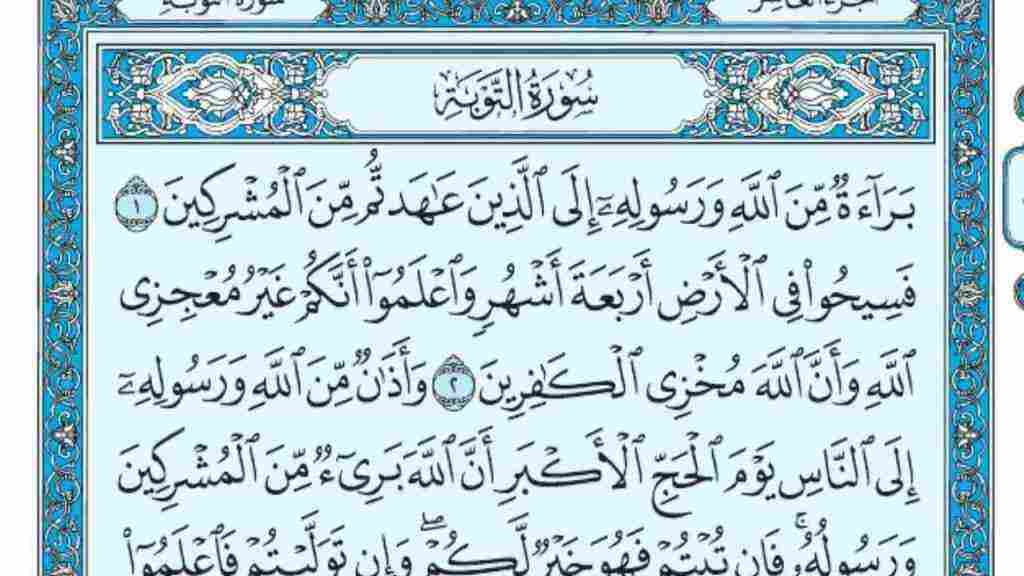 الجزء العاشر
سورة التوبة
سُورَةُ التَّوۡبَةِ
بَرَآءَةٌ مِّنَ ٱللَّهِ وَرَسُولِهِۦٓ إِلَى ٱلَّذِينَ عَٰهَدتُّم مِّنَ ٱلۡمُشۡرِكِينَ ١
فَسِيحُواْ فِي ٱلۡأَرۡضِ أَرۡبَعَةَ أَشۡهُرٍ وَٱعۡلَمُوٓاْ أَنَّكُمۡ غَيۡرُ مُعۡجِزِي
ٱللَّهِ وَأَنَّ ٱللَّهَ مُخۡزِي ٱلۡكَٰفِرِينَ ٢ وَأَذَٰنٌ مِّنَ ٱللَّهِ وَرَسُولِهِۦٓ
إِلَى ٱلنَّاسِ يَوۡمَ ٱلۡحَجِّ ٱلۡأَكۡبَرِ أَنَّ ٱللَّهَ بَرِيٓءٌ مِّنَ ٱلۡمُشۡرِكِينَ
وَرَسُولُهُۥۚ فَإِن تُبۡتُمۡ فَهُوَ خَيۡرٌ لَّكُمۡۖ وَإِن تَوَلَّيۡتُمۡ فَٱعۡلَمُوٓاْ